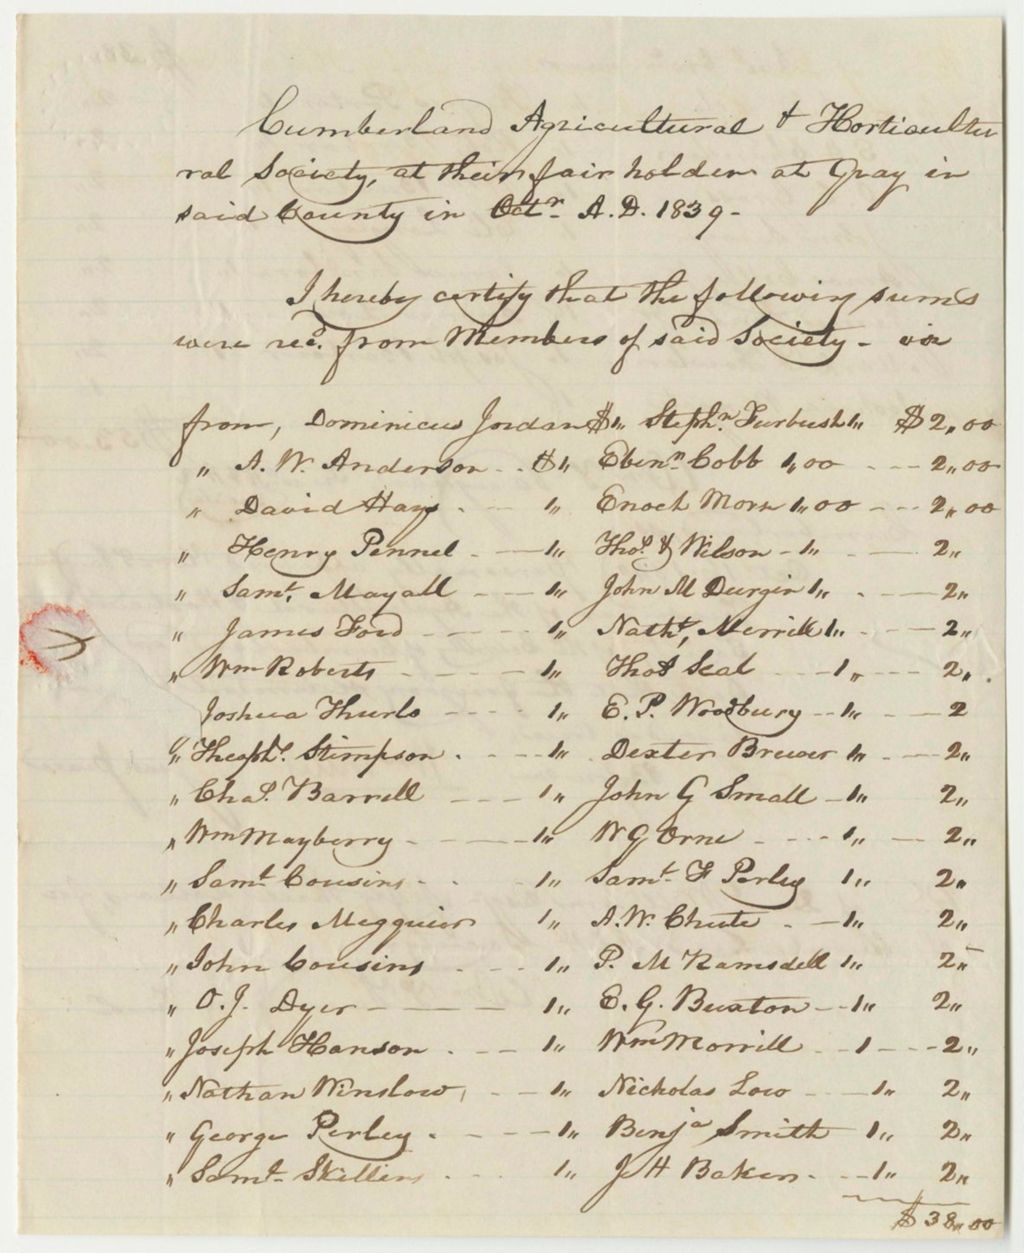 Cumberland Agricultural & Horticultu
ral Society, at their fair holden at Gray in
said County in Octr. A.D. 1839-
I hereby certify that the following sums
were recd. from Members of said Society - viz
from, Dominicus Jordan $1" Stephn. Furbush 1" $2,00
" A. W. Anderson - . $1" Ebenr. Cobb 1,00 - - - 2,,00
" David Hays - - 1" Enoch Morse 1,,00 - - - 2,,00
" Henry Pennel - - 1" Thos. Wilson - 1" . - - 2"
" Saml. Mayall - - - 1" John M Durgin 1" . - - 2"
" James Ford - - - - 1" Nathl. Merrill 1" . - - 2"
" Wm Roberts - - - - 1" Thos Seal - - 1" - - - 2"
Joshua Thurlo - - - - 1" E. P. Woodbury - - 1" - - 2
" Theophs. Stimpson . - - - 1" Dexter Brewer 1" - - 2"
" Chas. Barrell - - - 1" John G Small - 1" 2"
" Wm Mayberry - - - - 1" W G Orne - - - - 1" - 2"
" Saml. Cousins - . 1" Saml. F Perley 1" 2"
" Charles Megquier 1" A. W. Chute - - 1" 2"
" John Cousins - - - 1" P. M Ramsdell 1" 2"
" O. J. Dyer - - - - 1" E. G. Buxton - - 1" 2"
" Joseph Hanson . - - 1" Wm Morrill - - 1 - - - 2"
" Nathan Winslow, - - 1" Nicholas Low - - - 1" 2"
" George Perley . - - - - 1" Benja Smith 1" 2"
" Saml. Skillins - - - 1" J H Baker - - - 1" 2"
$38,,00